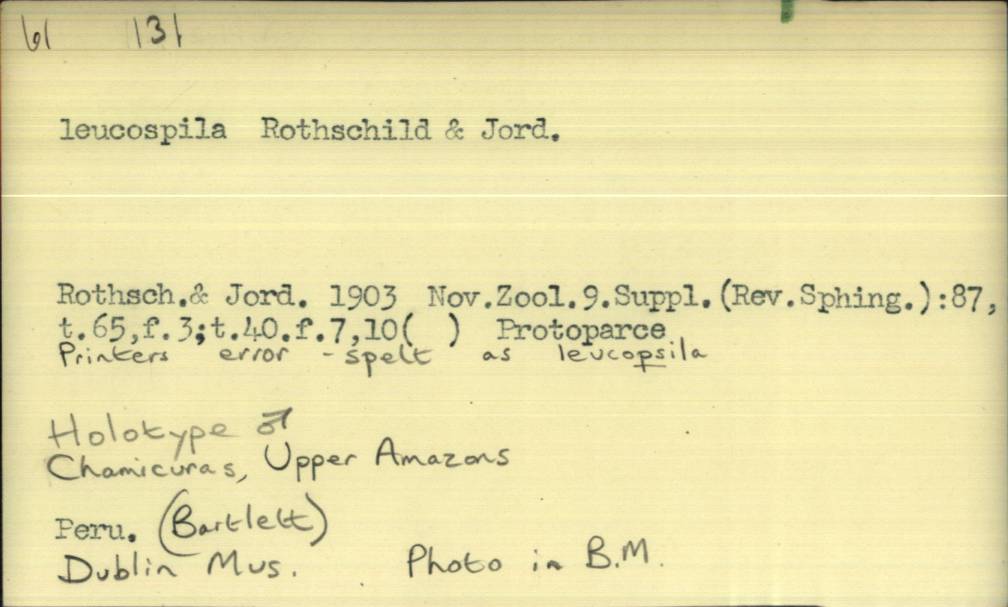 61 131
leucospila Rothschild & Jord.
Rothsch.& Jord. 1903 Nov.Zool.9.Suppl.(Rev.Sphing.):87,
t.65,f.3;t.40.f.7,10( ) Protoparce
Printers error - spelt as leucopsila
Holotype ♂
Chamicuras, Upper Amazons
Peru. (Bartlett)
Dublin Mus. Photo in B.M.